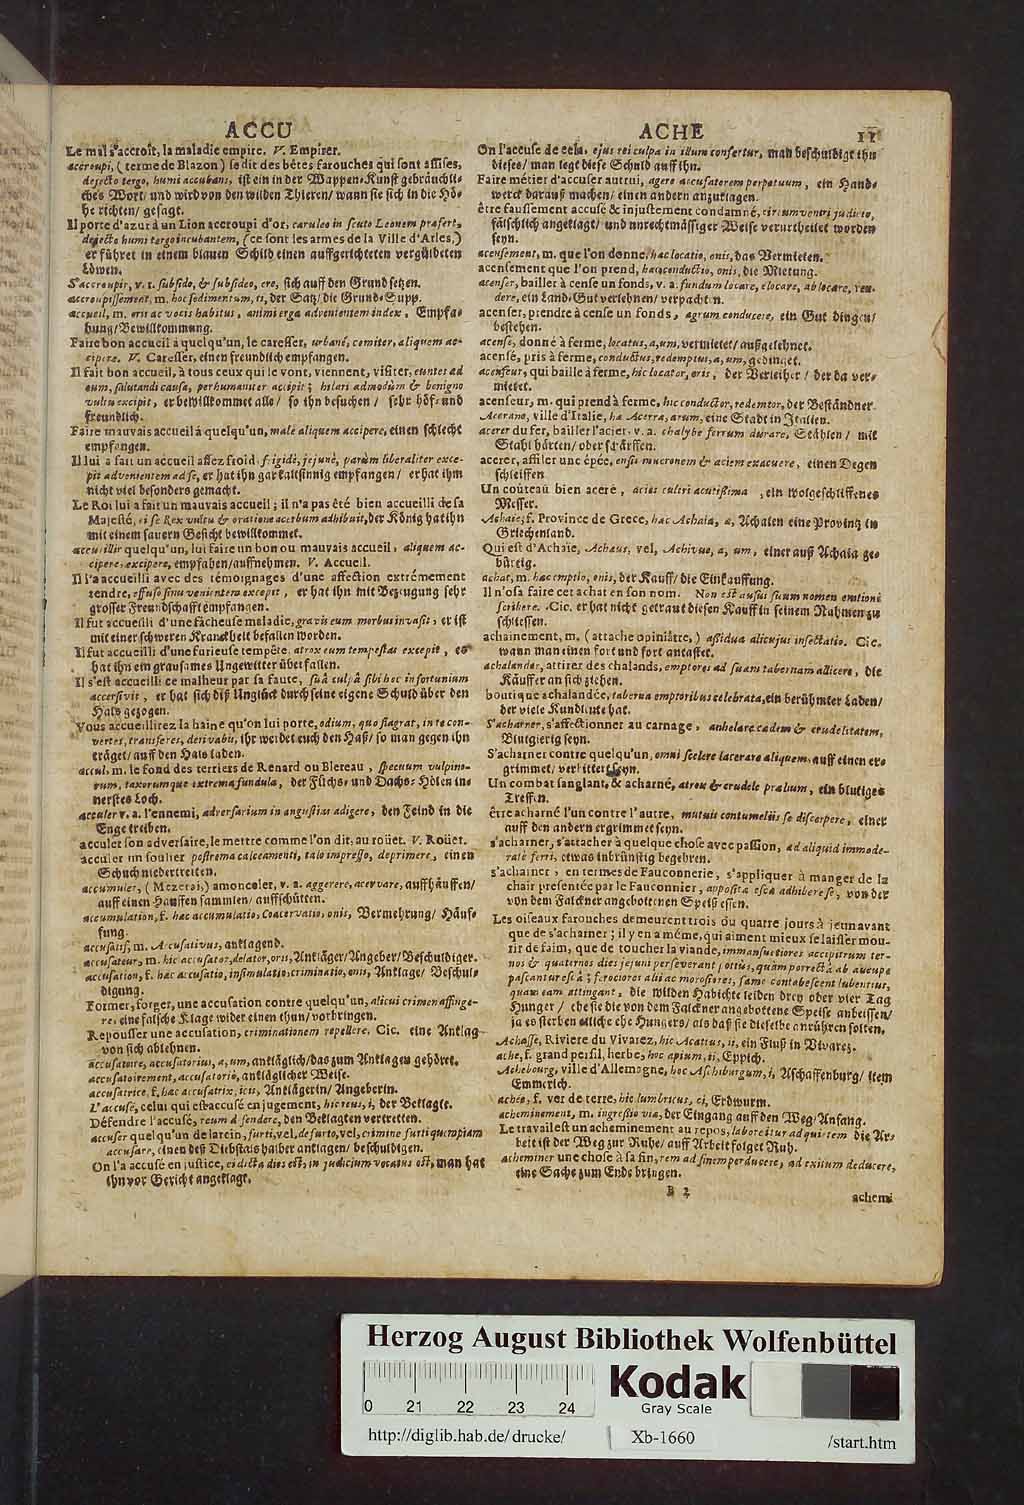 ACCU
Le mal s'accroît, la maladie empire. V. Empirer.
accroupi, (terme de Blazon) se dit des bêtes farouches qui sont assises,
dejecto tergo, humi accubans, ist ein in der Wappen-Kunst gebräuchli-
ches Wort/ und wird von den wilden Thieren/ wann sie sich in die Hö-
he richten/ gesagt.
Il porte d'azur à un Lion accroupi d'or, caruleo in scuto Leonem præfert,
dejecto humi tergo incubantem, (ce sont les armes de la Ville d'Arles,)
er führet in einem blauen Schild einen auffgerichteten vergüldeten
Löwen.
S'accroupir, v. r. subsido, & subsideo, ere, sich auff den Grund setzen.
accroupissement, m. hoc sedimentum, ii, der Satz/ die Grund-Supp.
accueil, m. oris ac vocis habitus, animi erga advenientem index, Empfa-
hung/ Bewillkommung.
Faire bon accueil à quelqu'un, le caresser, urbanè, comiter, aliquem ac-
cipere. V. Caresser, einen freundlich empfangen.
Il fait bon accueil, à tous ceux qui le vont, viennent, visiter, euntes ad
eum, salutandi causa, perhumaniter accipit; hilari admodùm & benigno
vultu excipit, er bewillkommet alle/ so ihn besuchen/ sehr höf- und
freundlich.
Faire mauvais accueil à quelqu'un, male aliquem accipere, einen schlecht
empfangen.
Il lui a fait un accueil assez froid. frigidè, jejunè, parùm liberaliter exce-
pit advenientem ad se, er hat ihn gar kaltsinnig empfangen/ er hat ihm
nicht viel besonders gemacht.
Le Roi lui a fait un mauvais accueil; il n'a pas été bien accueilli de sa
Majesté, ei se Rex vultu & oratione acerbum adhibuit, der König hat ihn
mit einem sauern Gesicht bewillkommet.
accueillir quelqu'un, lui faire un bon ou mauvais accueil, aliquem ac-
cipere, excipere, empfahen/ auffnehmen. V. Accueil.
Il l'a accueilli avec des témoignages d'une affection extrémement
tendre, effuso sinu venientem excepit, er hat ihn mit Bezeugung sehr
grosser Freundschafft empfangen.
Il fut accueilli d'une fâcheuse maladie, gravis eum morbus invasit, er ist
mit einer schweren Kranckheit befallen worden.
Il fut accueilli d'une furieuse tempête, atrox eum tempestas excepit, es
hat ihn ein grausames Ungewitter überfallen.
Il s'est accueilli ce malheur par sa faute, suâ culpâ sibi hoc infortunium
accersivit, er hat sich diß Unglück durch seine eigene Schuld über den
Hals gezogen.
Vous accueillirez la haine qu'on lui porte, odium, quo flagrat, in te con-
vertes, transferes, derivabis, ihr werdet euch den Haß/ so man gegen ihn
träget/ auff den Hals laden.
accul, m. le fond des terriers de Renard ou Blereau, specuum vulpino-
rum, taxorumque extrema fundula, der Füchs- und Dachs-Hölen in-
nerstes Loch.
acculer v. a. l'ennemi, adversarium in angustias adigere, den Feind in die
Enge treiben.
acculer son adversaire, le mettre comme l'on dit, au roüet. V. Roüet.
acculer un soulier postrema calceamenti, talo impresso, deprimere, einen
Schuch niedertretten.
accumuler, (Mezerai,) amonceler, v. a. aggerere, acervare, auffhäuffen/
auff einen Hauffen sammlen/ auffschütten.
accumulation, f. hac accumulatio, coacervatio, onis, Vermehrung/ Häuf-
fung.
accusatif, m. Accusativus, anklagend.
accusateur, m. hic accusator, delator, oris, Ankläger/ Angeber/ Beschuldiger.
accusation, f. hac accusatio, insimulatio, criminatio, onis, Anklage/ Beschul-
digung.
Former, forger, une accusation contre quelqu'un, alicui crimen affinge-
re, eine falsche Klage wider einen thun/ vorbringen.
Repousser une accusation, criminationem repellere. Cic. eine Anklag
von sich ablehnen.
accusatoire, accusatorius, a, um, ankläglich/ das zum Anklagen gehöret.
accusatoirement, accusatoriè, ankläglicher Weise.
accusatrice, f. hac accusatrix, icis, Anklägerin/ Angeberin.
L'accusé, celui qui est accusé en jugement, hic reus, i, der Beklagte.
Défendre l'accusé, reum defendere, den Beklagten vertretten.
accuser quelqu'un de larcin, furti, vel, de furto, vel, crimine furti quempiam
accusare, einen deß Diebstals halber anklagen/ beschuldigen.
On l'a accusé en justice, ei dicta dies est, in judicium vocatus est, man hat
ihn vor Gericht angeklagt.
ACHE
11
On l'accuse de cela, ejus rei culpa in illum confertur, man beschuldigt ihn
dieses/ man legt diese Schuld auff ihn.
Faire métier d'accuser autrui, agere accusatorem perpetuum, ein Hand-
werck darauß machen/ einen andern anzuklagen.
être faussement accusé & injustement condamné, circumveniri judicio,
fälschlich angeklagt/ und unrechtmässiger Weise verurtheilet worden
seyn.
acensement, m. que l'on donne, hac locatio, onis, das Vermieten.
acensement que l'on prend, hac conductio, onis, die Mietung.
acenser, bailler à cense un fonds, v. a. fundum locare, elocare, ablocare, ven-
dere, ein Land-Gut verlehnen/ verpachten.
acenser, prendre à cense un fonds, agrum conducere, ein Gut dingen/
bestehen.
acensé, donné à ferme, locatus, a, um, vermietet/ außgelehnet.
acensé, pris à ferme, conductus, redemptus, a, um, gedinget.
acenseur, qui baille à ferme, hic locator, oris, der Verleiher/ der da ver-
mietet.
acenseur, m. qui prend à ferme, hic conductor, redemtor, der Beständner.
Acerano, ville d'Italie, ha Acerra, arum, eine Stadt in Italien.
acerer du fer, bailler l'acier. v. a. chalybe ferrum durare, Stählen/ mit
Stahl härten/ oder schärffen.
acerer, affiler une épée, ensis mucronem & aciem exacuere, einen Degen
schleiffen.
Un coûteau bien aceré, acies cultri acutissima, ein wolgeschliffenes
Messer.
Achaïe, f. Province de Grece, hac Achaia, a, Achaien eine Provintz in
Griechenland.
Qui est d'Achaïe, Achaus, vel, Achivus, a, um, einer auß Achaia ge-
bürtig.
achat, m. hac emptio, onis, der Kauff/ die Einkauffung.
Il n'osa faire cet achat en son nom. Non est ausus suum nomen emtioni
scribere. Cic. er hat nicht getraut diesen Kauff in seinem Nahmen zu
schliessen.
achainement, m. (attache opiniâtre,) assidua alicujus insectatio. Cic.
wann man einen fort und fort antastet.
achalander, attirer des chalands, emptores ad suam tabernam allicere, die
Käuffer an sich ziehen.
boutique achalandée, taberna emptoribus celebrata, ein berühmter Laden/
der viele Kundleute hat.
S'acharner, s'affectionner au carnage, anhelare cædem & crudelitatem,
Blutgierig seyn.
S'acharner contre quelqu'un, omni scelere lacerare aliquem, auff einen er-
grimmet/ verbittert seyn.
Un combat sanglant, & acharné, atrox & crudele prælium, ein blutiges
Treffen.
être acharné l'un contre l'autre, mutuis contumeliis se discerpere, einer
auff den andern ergrimmet seyn.
s'acharner, s'attacher à quelque chose avec passion, ad aliquid immode-
ratè ferri, etwas inbrünstig begehren.
s'acharner, en termes de Fauconnerie, s'appliquer à manger de la
chair presentée par le Fauconnier, apposita esca adhibere se, von der
von dem Falckner angebottenen Speiß essen.
Les oiseaux farouches demeurent trois ou quatre jours à jeun avant
que de s'acharner; il y en a même, qui aiment mieux se laisser mou-
rir de faim, que de toucher la viande, immansuetiores accipitrum ter-
nos & quaternos dies jejuni perseverant potiùs, quam porrectâ ab aucupe
pascantur escâ; ferociores alii ac morosiores, fame contabescent lubentius,
quàm eam attingant, die wilden Habichte leiden drey oder vier Tag
Hunger/ ehe sie die von dem Falckner angebottene Speise anbeissen/
ja es sterben etliche ehe Hungers/ als daß sie dieselbe anrühren solten.
Achasse, Riviere du Vivarez, hic Acatius, ii, ein Fluß in Vivarez.
ache, f. grand persil, herbe, hoc apium, ii, Eppich.
Achebourg, ville d'Allemogne, hoc Aschiburgum, i, Aschaffenburg/ item
Emmerich.
achée, f. ver de terre, hic lumbricus, ci, Erdwurm.
acheminement, m. ingressio via, der Eingang auff den Weg/ Anfang.
Le travail est un acheminement au repos, labore itur ad quietem die Ar-
beit ist der Weg zur Ruhe/ auff Arbeit folget Ruh.
acheminer une chose à sa fin, rem ad finem perducere, ad exitum deducere,
eine Sache zum Ende bringen.
B 2
achemi
Herzog August Bibliothek Wolfenbüttel
0 21 22 23 24
Kodak
Gray Scale
http://diglib.hab.de/drucke/
Xb-1660
/start.htm